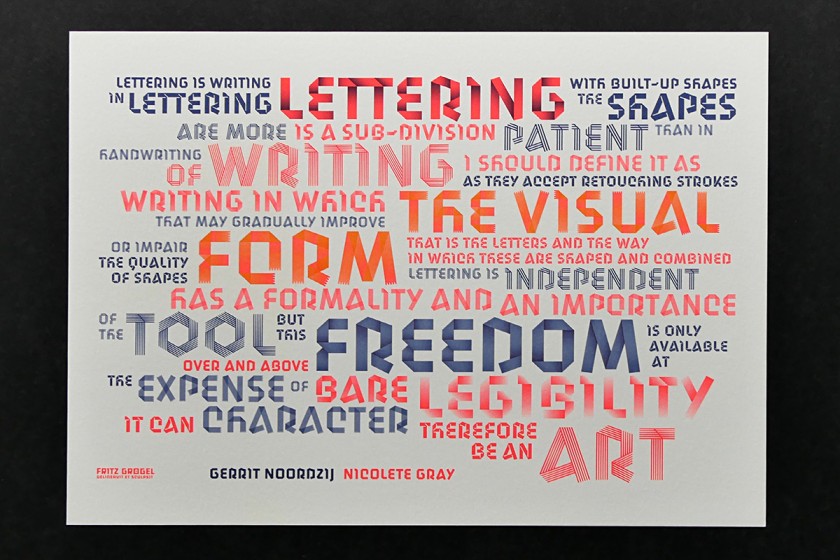 LETTERING IS WRITING LETTERING WITH BUILT-UP SHAPES
IN LETTERING THE SHAPES
ARE MORE IS A SUB-DIVISION PATIENT THAN IN
HANDWRITING OF WRITING I SHOULD DEFINE IT AS
AS THEY ACCEPT RETOUCHING STROKES
WRITING IN WHICH THE VISUAL
THAT MAY GRADUALLY IMPROVE
OR IMPAIR FORM THAT IS THE LETTERS AND THE WAY
THE QUALITY IN WHICH THESE ARE SHAPED AND COMBINED
OF SHAPES LETTERING IS INDEPENDENT
HAS A FORMALITY AND AN IMPORTANCE
OF THE TOOL BUT THIS FREEDOM IS ONLY
AVAILABLE
AT
OVER AND ABOVE
THE EXPENSE OF BARE LEGIBILITY
IT CAN CHARACTER THEREFORE
BE AN ART
FRITZ GROGEL
GERRIT NOORDZIJ NICOLETE GRAY